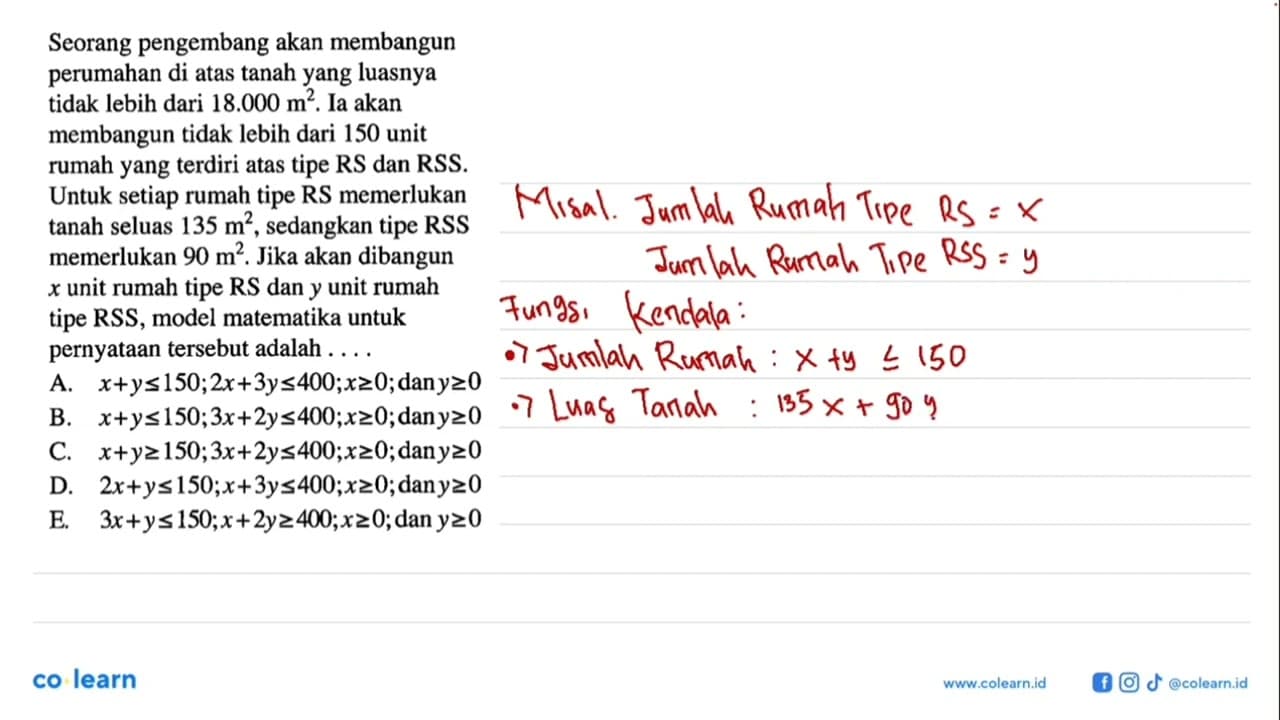 Seorang pengembang akan membangun
perumahan di atas tanah yang luasnya
tidak lebih dari 18.000 m². Ia akan
membangun tidak lebih dari 150 unit
rumah yang terdiri atas tipe RS dan RSS.
Untuk setiap rumah tipe RS memerlukan
tanah seluas 135 m², sedangkan tipe RSS
memerlukan 90 m². Jika akan dibangun
x unit rumah tipe RS dan y unit rumah
tipe RSS, model matematika untuk
pernyataan tersebut adalah . . . .
A. x+y≤150; 2x+3y≤400; x≥0; dan y≥0
B. x+y≤150; 3x+2y≤400; x≥0; dan y≥0
C. x+y≥150; 3x+2y≤400; x≥0; dan y≥0
D. 2x+y≤150; x+3y≤400; x≥0; dan y≥0
E. 3x+y≤150; x+2y≥400; x≥0; dan y≥0
Misal. Jumlah Rumah Tipe RS = x
Jumlah Rumah Tipe RSS = y
Fungsi Kendala :
•> Jumlah Rumah : x + y ≤ 150
•> Luas Tanah : 135 x + 90 y
co learn
www.colearn.id
@colearn.id